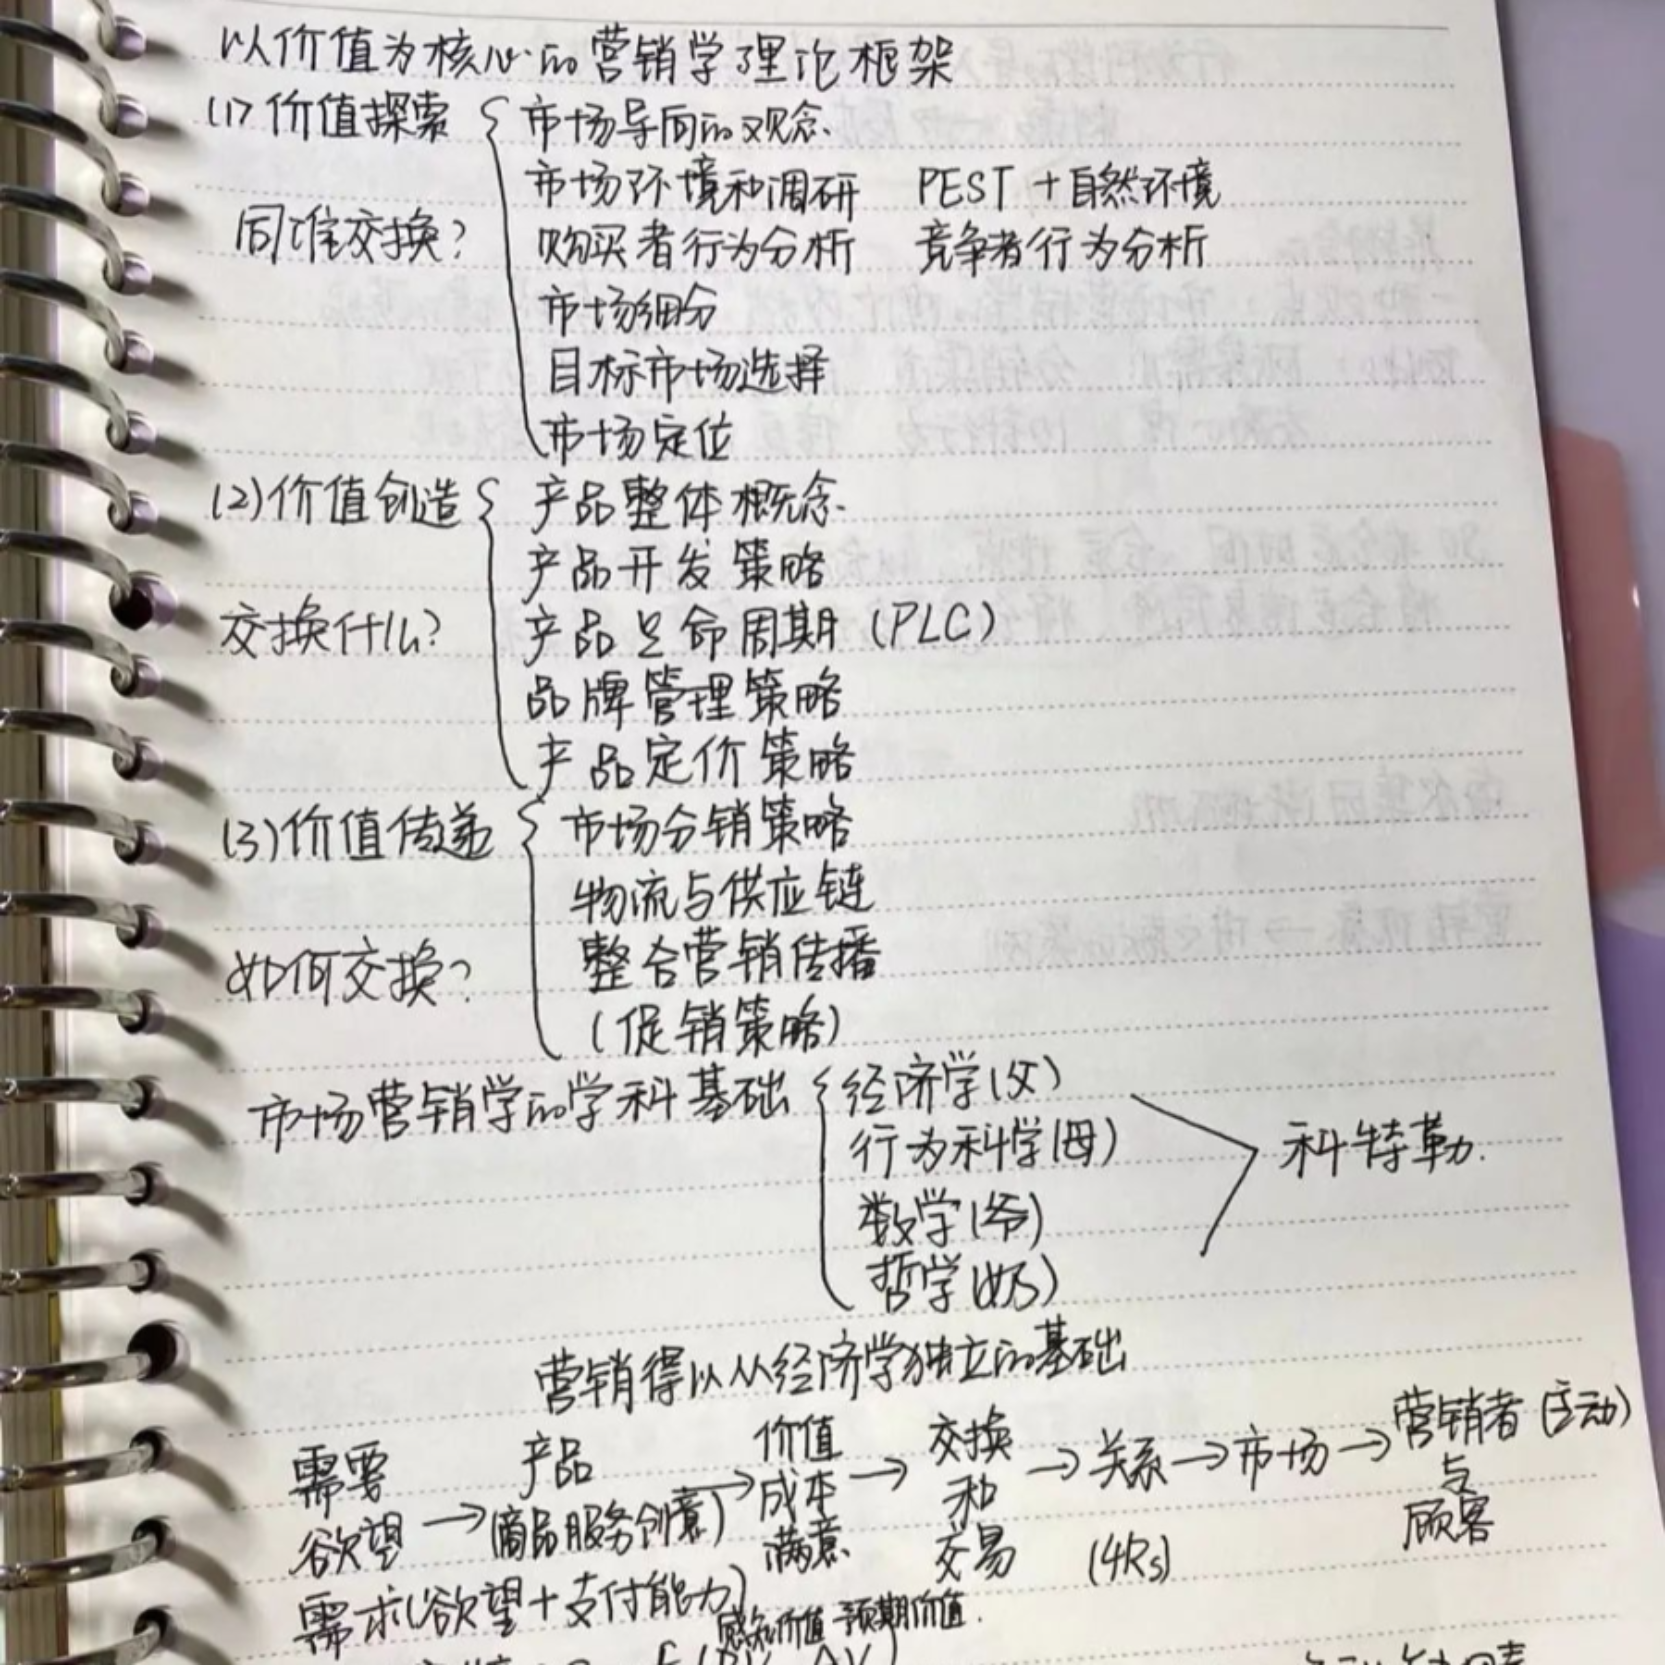 以价值为核心的营销学理论框架
(1) 价值探索 { 市场导向的观念
市场环境和调研 PEST + 自然环境
同谁交换? 购买者行为分析 竞争者行为分析
市场细分
目标市场选择
市场定位
(2) 价值创造 { 产品整体概念
产品开发策略
交换什么? 产品生命周期 (PLC)
品牌管理策略
产品定价策略
(3) 价值传递 { 市场分销策略
物流与供应链
如何交换? 整合营销传播
(促销策略)
市场营销学的学科基础 { 经济学(父)
行为科学(母) > 科特勒.
数学(爷)
哲学(奶)
营销得以从经济学独立的基础
需要 产品 价值 交换 营销者 (主动)
欲望 → (商品服务创意) → 成本 → 和 → 关系 → 市场 → 与
满意 交易 (4Rs) 顾客
需求(欲望+支付能力)
感知价值 预期价值.